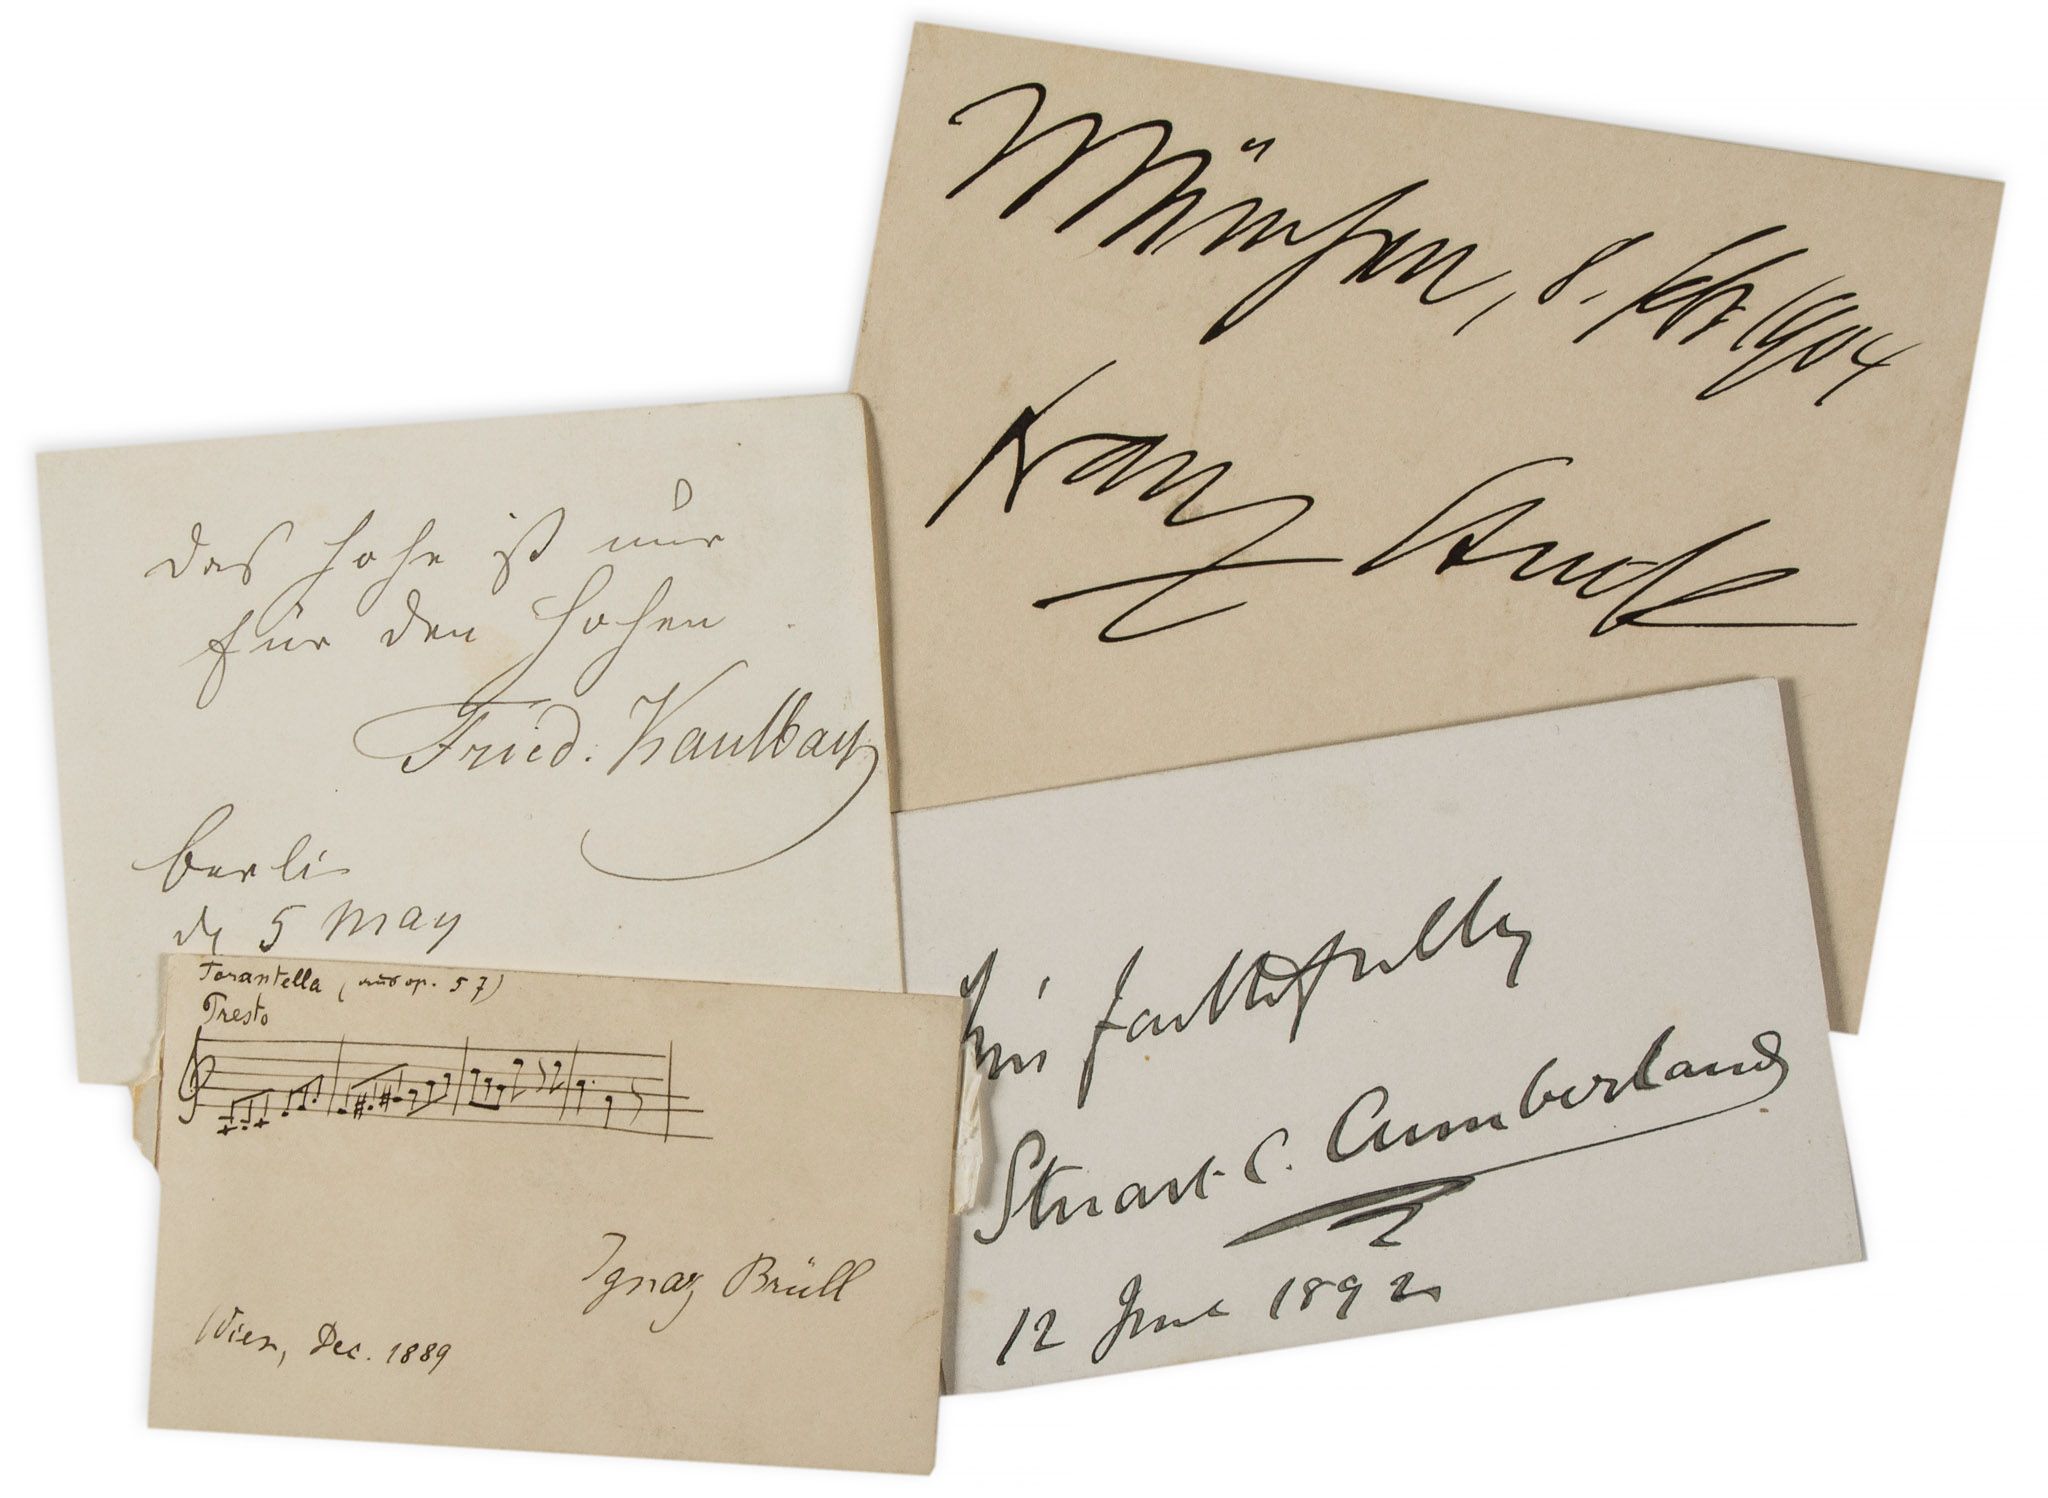 München, 8. Febr. 1904
Franz Stuck
das hohe ist nur
für den hohen
Fried. Kaulbach
berlin
5 May
Tarantella (aus op. 57)
Presto
Ignaz Brüll
Wien, Dec. 1889
faithfully
Stuart C. Cumberland
12 June 1892